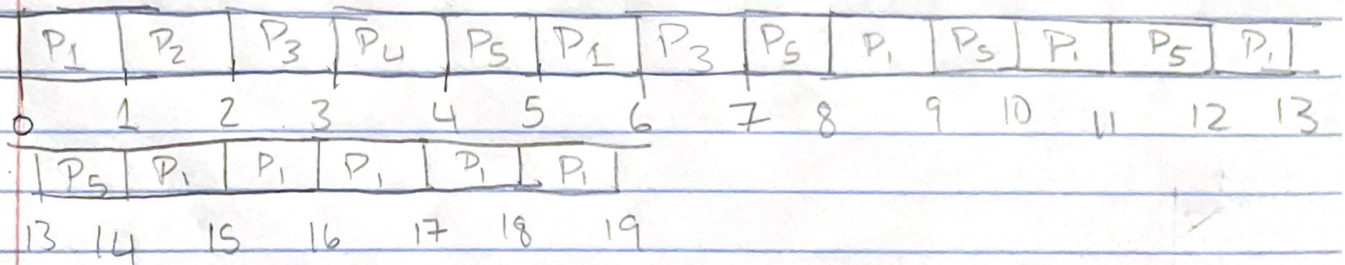 P1 P2 P3 P4 P5 P1 P3 P5 P1 P5 P1 P5 P1
0 1 2 3 4 5 6 7 8 9 10 11 12 13
P5 P1 P1 P1 P1 P1
13 14 15 16 17 18 19